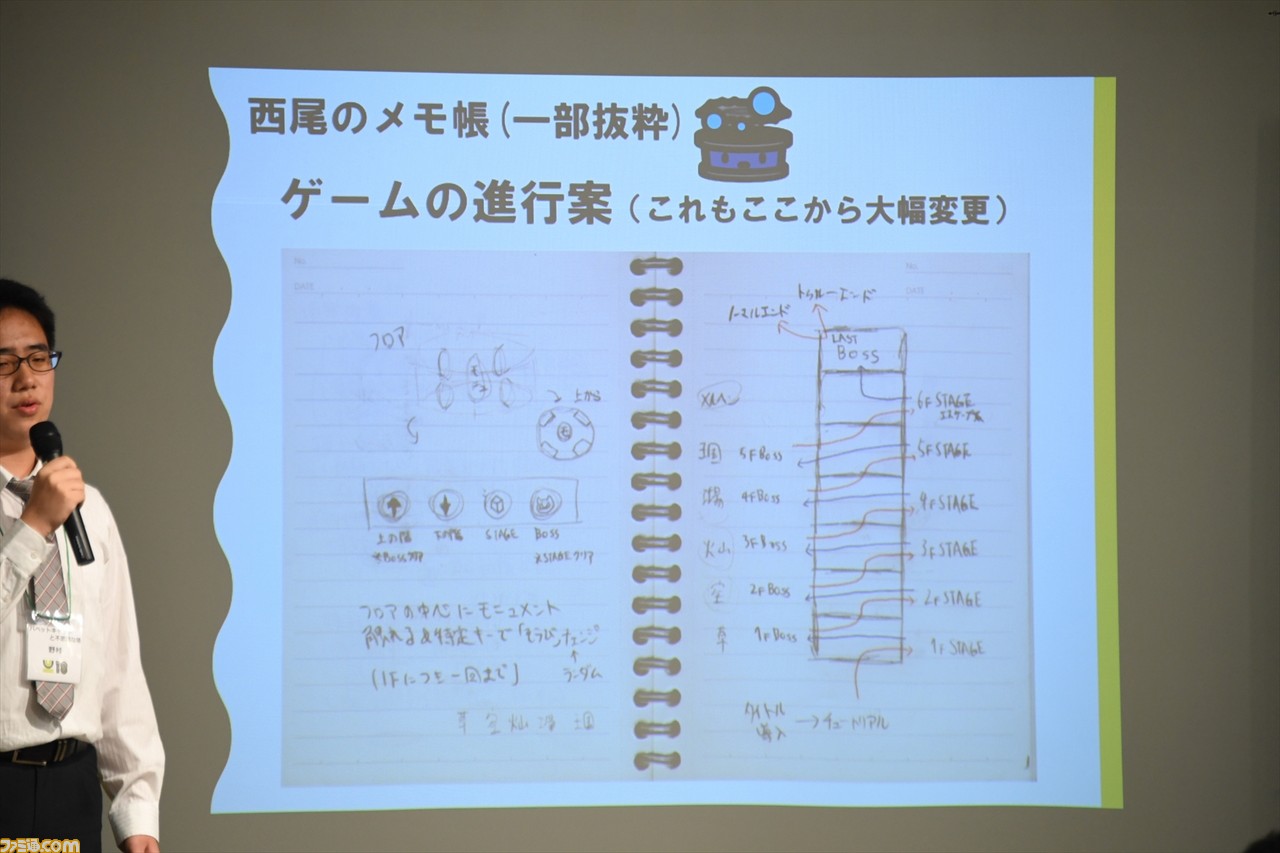 西尾のメモ帳(一部抜粋)
ゲームの進行案(これもここから大幅変更)
No.
DATE
フロア
上から
上の階
下の階
STAGE
BOSS
※Bossクリア
※STAGEクリア
フロアの中心にモニュメント
触れる&特定キーで「そうびチェンジ」
ランダム
(1Fにつき一回まで)
No.
DATE
トゥルーエンド
ノーマルエンド
LAST
BOSS
6F STAGE
5F Boss
5F STAGE
4F Boss
4F STAGE
火山
3F Boss
3F STAGE
空
2F Boss
2F STAGE
草
1F Boss
1F STAGE
タイトル
導入
→チュートリアル
野村
ファミ通.com